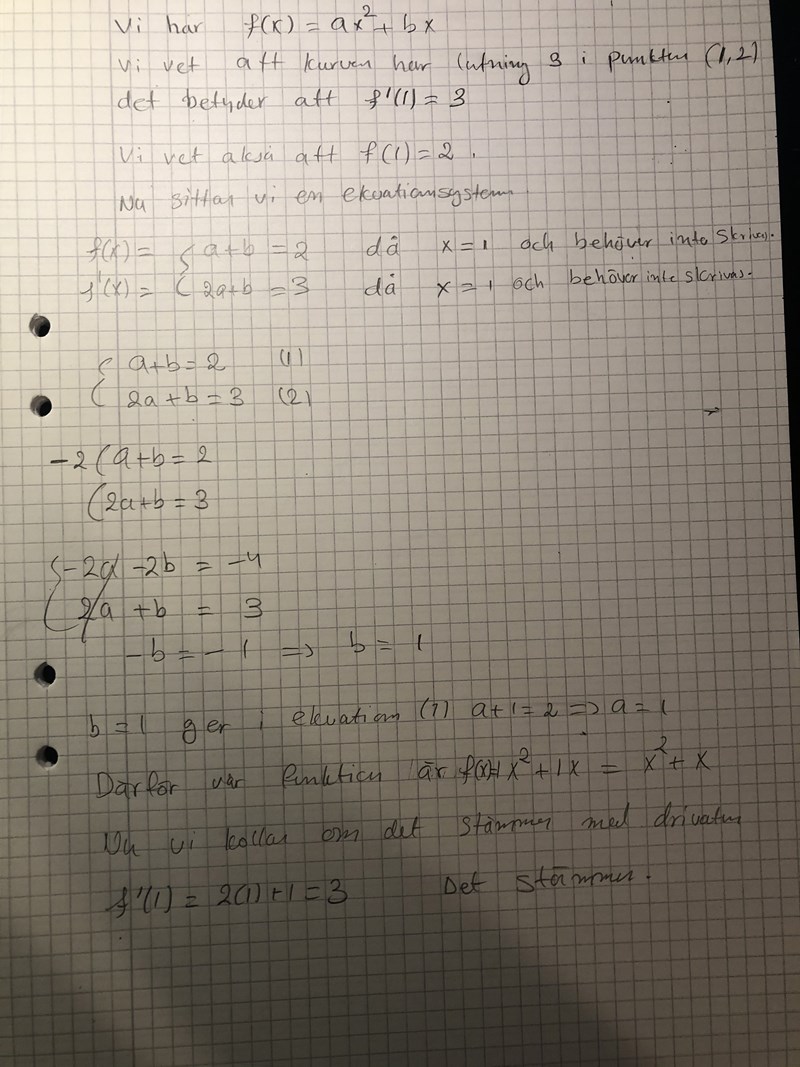 Vi har f(x) = ax² + bx
Vi vet att kurvan har lutning 3 i punkten (1,2)
det betyder att f'(1) = 3
Vi vet också att f(1) = 2.
Nu sittar vi en ekvationsystem
f(x) = { a+b = 2 då x = 1 och behöver inte skrivas.
f'(x) = ( 2a+b = 3 då x = 1 och behöver inte skrivas.
{ a+b = 2 (1)
( 2a+b = 3 (2)
-2 ( a+b = 2
( 2a+b = 3
{ -2a -2b = -4
( 2a +b = 3
-b = -1 => b = 1
b = 1 ger i ekvation (1) a+1=2 => a=1
Därför vår funktion är f(x)=1x²+1x = x²+x
Nu vi kollar om det stämmer med drivatan
f'(1) = 2(1)+1 = 3 Det stämmer.